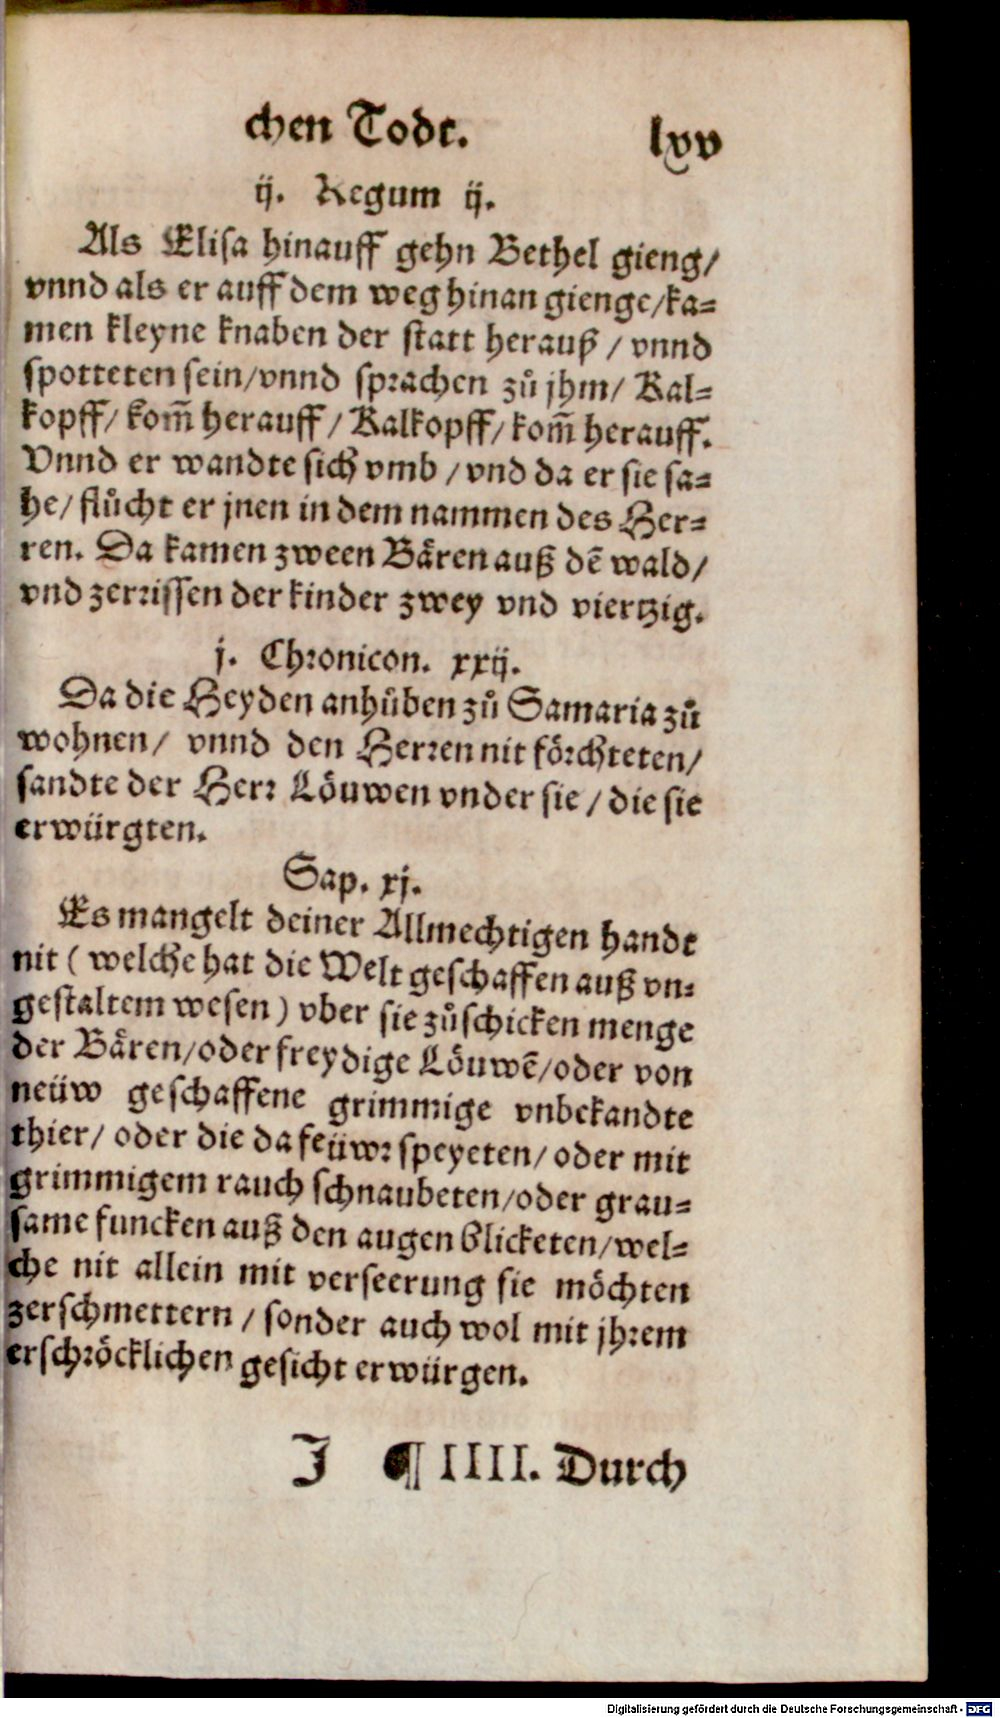 chen Todt. lxv
ij. Regum ij.
Als Elisa hinauff gehn Bethel gieng/
vnnd als er auff dem weg hinan gienge/ka-
men kleyne knaben der statt herauß / vnnd
spotteten sein/vnnd sprachen zů jhm/ Kal-
kopff/ kom̃ herauff / Kalkopff/ kom̃ herauff.
Vnnd er wandte sich vmb / vnd da er sie sa-
he/ flůcht er jnen in dem nammen des Her-
ren. Da kamen zween Bären auß dẽ wald/
vnd zerrissen der kinder zwey vnd viertzig.
j. Chronicon. xxij.
Da die Heyden anhůben zů Samaria zů
wohnen/ vnnd den Herren nit förchteten/
sandte der Herr Löuwen vnder sie / die sie
erwürgten.
Sap. xj.
Es mangelt deiner Allmechtigen handt
nit ( welche hat die Welt geschaffen auß vn-
gestaltem wesen ) vber sie zůschicken menge
der Bären/oder freydige Löuwẽ/oder von
neüw geschaffene grimmige vnbekandte
thier/ oder die da feüwr speyeten/ oder mit
grimmigem rauch schnaubeten/oder grau-
same funcken auß den augen blicketen/wel-
che nit allein mit verseerung sie möchten
zerschmettern / sonder auch wol mit jhrem
erschröcklichen gesicht erwürgen.
J ¶ IIII. Durch
Digitalisierung gefördert durch die Deutsche Forschungsgemeinschaft - DFG